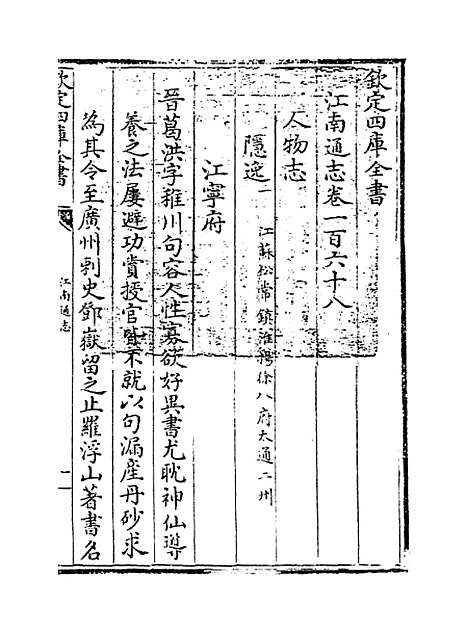 欽定四庫全書
江南通志卷一百六十八
人物志
隱逸一 江蘇松常鎮淮揚徐八府太通二州
江寧府
晉葛洪字稚川句容人性寡欲好異書尤耽神仙導
養之法屢避功賞授官皆不就以句漏產丹砂求
為其令至廣州刺史鄧嶽留之止羅浮山著書名
欽定四庫全書
江南通志
一